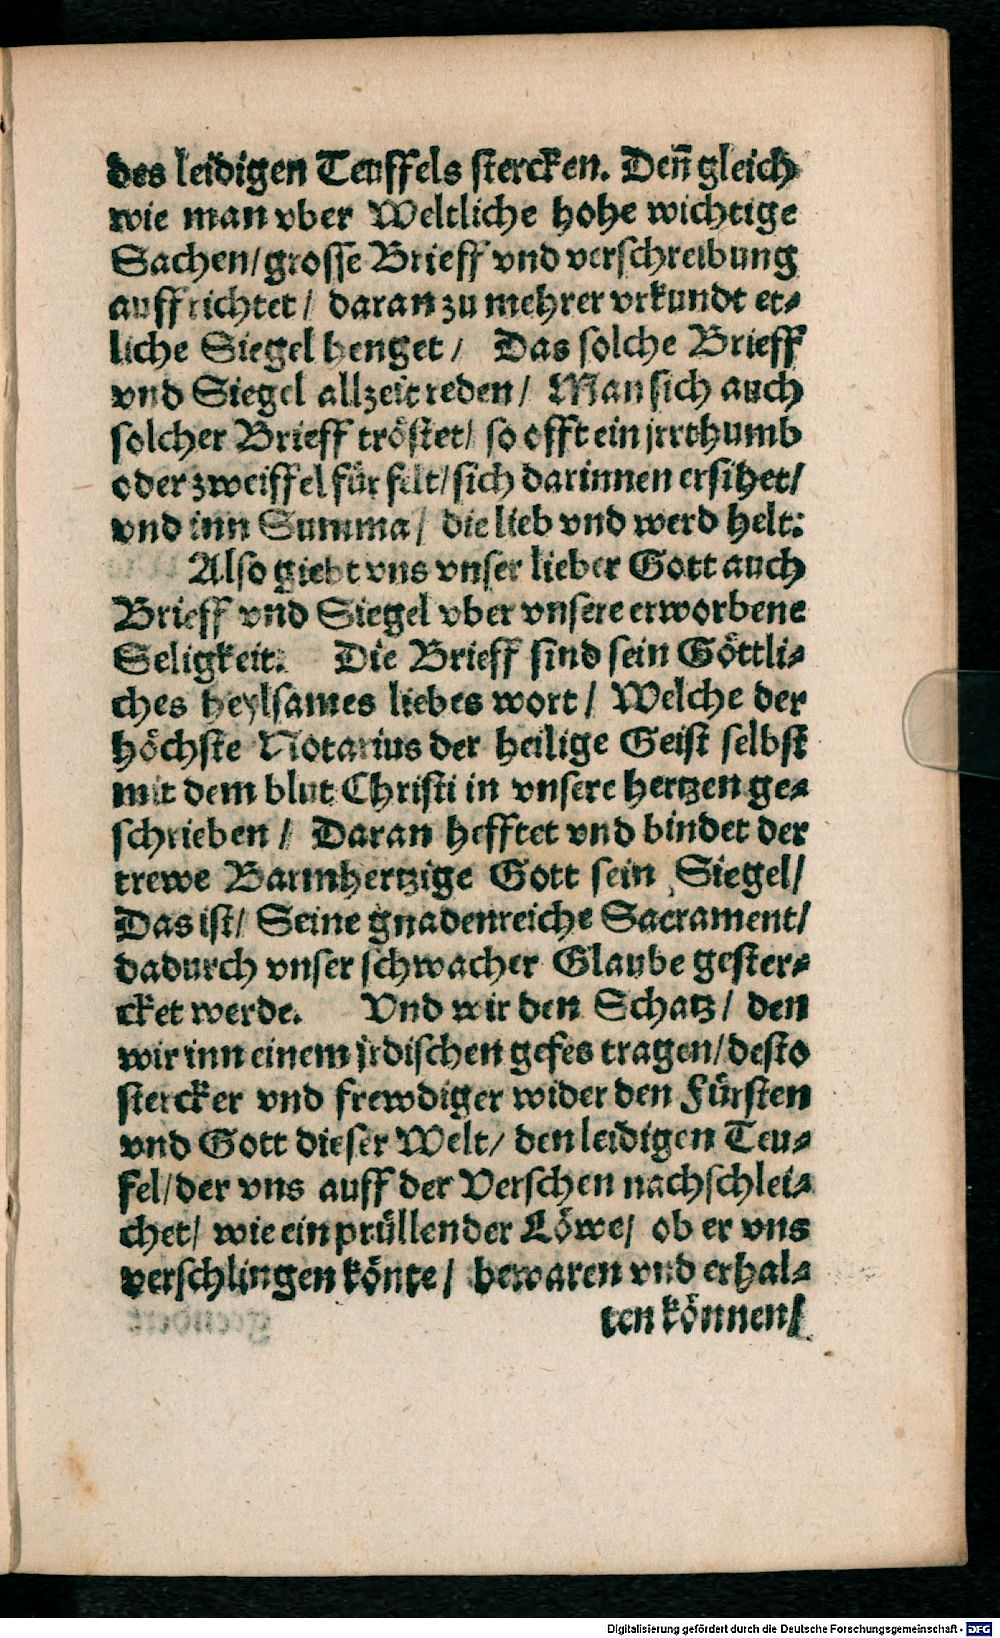 des leidigen Teuffels stercken. Deñ gleich
wie man vber Weltliche hohe wichtige
Sachen/grosse Brieff vnd verschreibung
auffrichtet/ daran zu mehrer vrkundt et-
liche Siegel henget/ Das solche Brieff
vnd Siegel allzeit reden/ Man sich auch
solcher Brieff tröstet/ so offt ein jrrthumb
oder zweiffel für felt/sich darinnen ersihet/
vnd inn Summa/ die lieb vnd werd helt:
Also giebt vns vnser lieber Gott auch
Brieff vnd Siegel vber vnsere erworbene
Seligkeit: Die Brieff sind sein Göttli-
ches heylsames liebes wort/ Welche der
höchste Notarius der heilige Geist selbst
mit dem blut Christi in vnsere hertzen ge-
schrieben/ Daran hefftet vnd bindet der
trewe Barmhertzige Gott sein Siegel/
Das ist/ Seine gnadenreiche Sacrament/
dadurch vnser schwacher Glaube gester-
cket werde. Vnd wir den Schatz/ den
wir inn einem jrdischen gefes tragen/desto
stercker vnd frewdiger wider den Fürsten
vnd Gott dieser Welt/ den leidigen Teu-
fel/der vns auff der Verschen nachschlei-
chet/ wie ein prüllender Löwe/ ob er vns
verschlingen könte/ bewaren vnd erhal-
ten können/
Digitalisierung gefördert durch die Deutsche Forschungsgemeinschaft - DFG